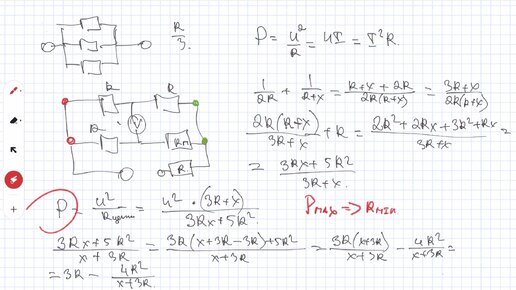 R/3
P = u²/R = uI = I²R.
1/2R + 1/R+x = R+x+2R/2R(R+x) = 3R+x/2R(R+x)
R R
V
R Rп
R
2R(R+x)/3R+x + R = 2R²+2Rx+3R²+Rx/3R+x =
= 3Rx+5R²/3R+x.
P = u²/Rцепи = u²·(3R+x)/3Rx+5R².
Pmax => Rmin
3Rx+5R²/x+3R = 3R(x+3R-3R)+5R²/x+3R = 3R(x+3R)/x+3R - 4R²/x+3R =
= 3R - 4R²/x+3R.